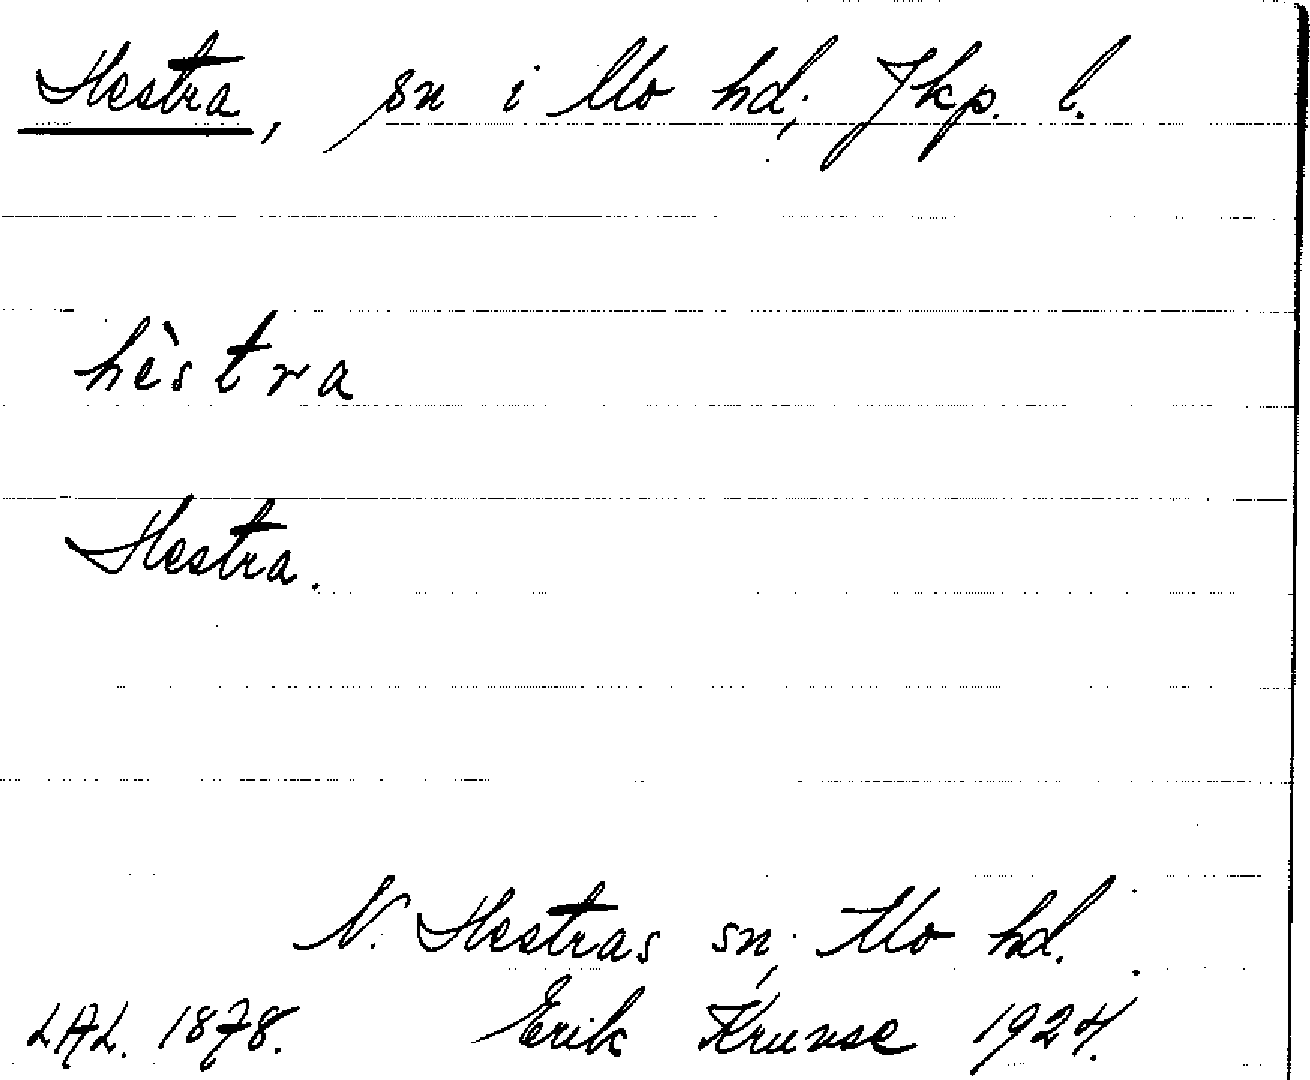 Hestra, sn i Mo hd, Jkp. l.
hèstra
Hestra.
N. Hestras sn, Mo hd.
LAL. 1878. Erik Kruuse 1924.